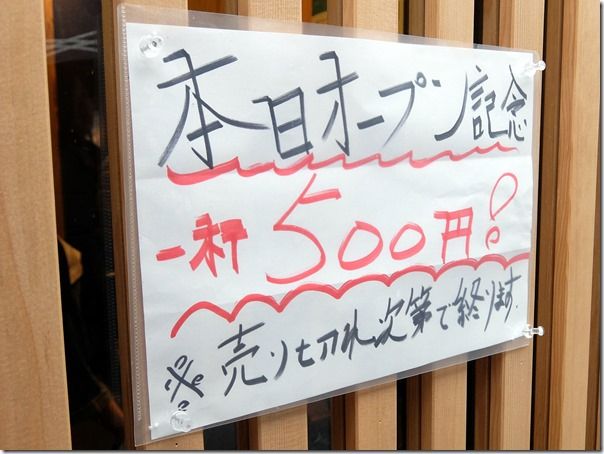 本日オープン記念
一杯 500円!
※売り切れ次第で終ります.